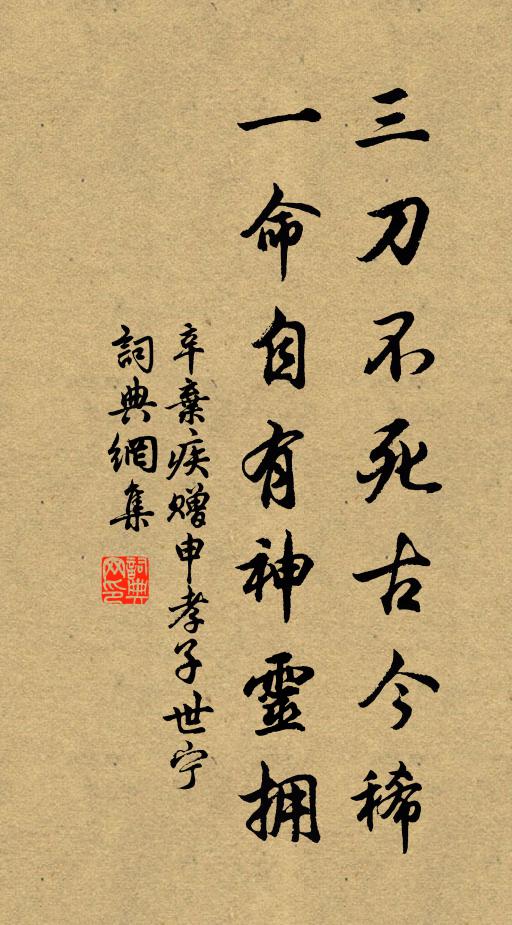 三刀不死古今稀
一命自有神靈拥
辛棄疾赠申孝子世宁
詞典網集
詞典网印